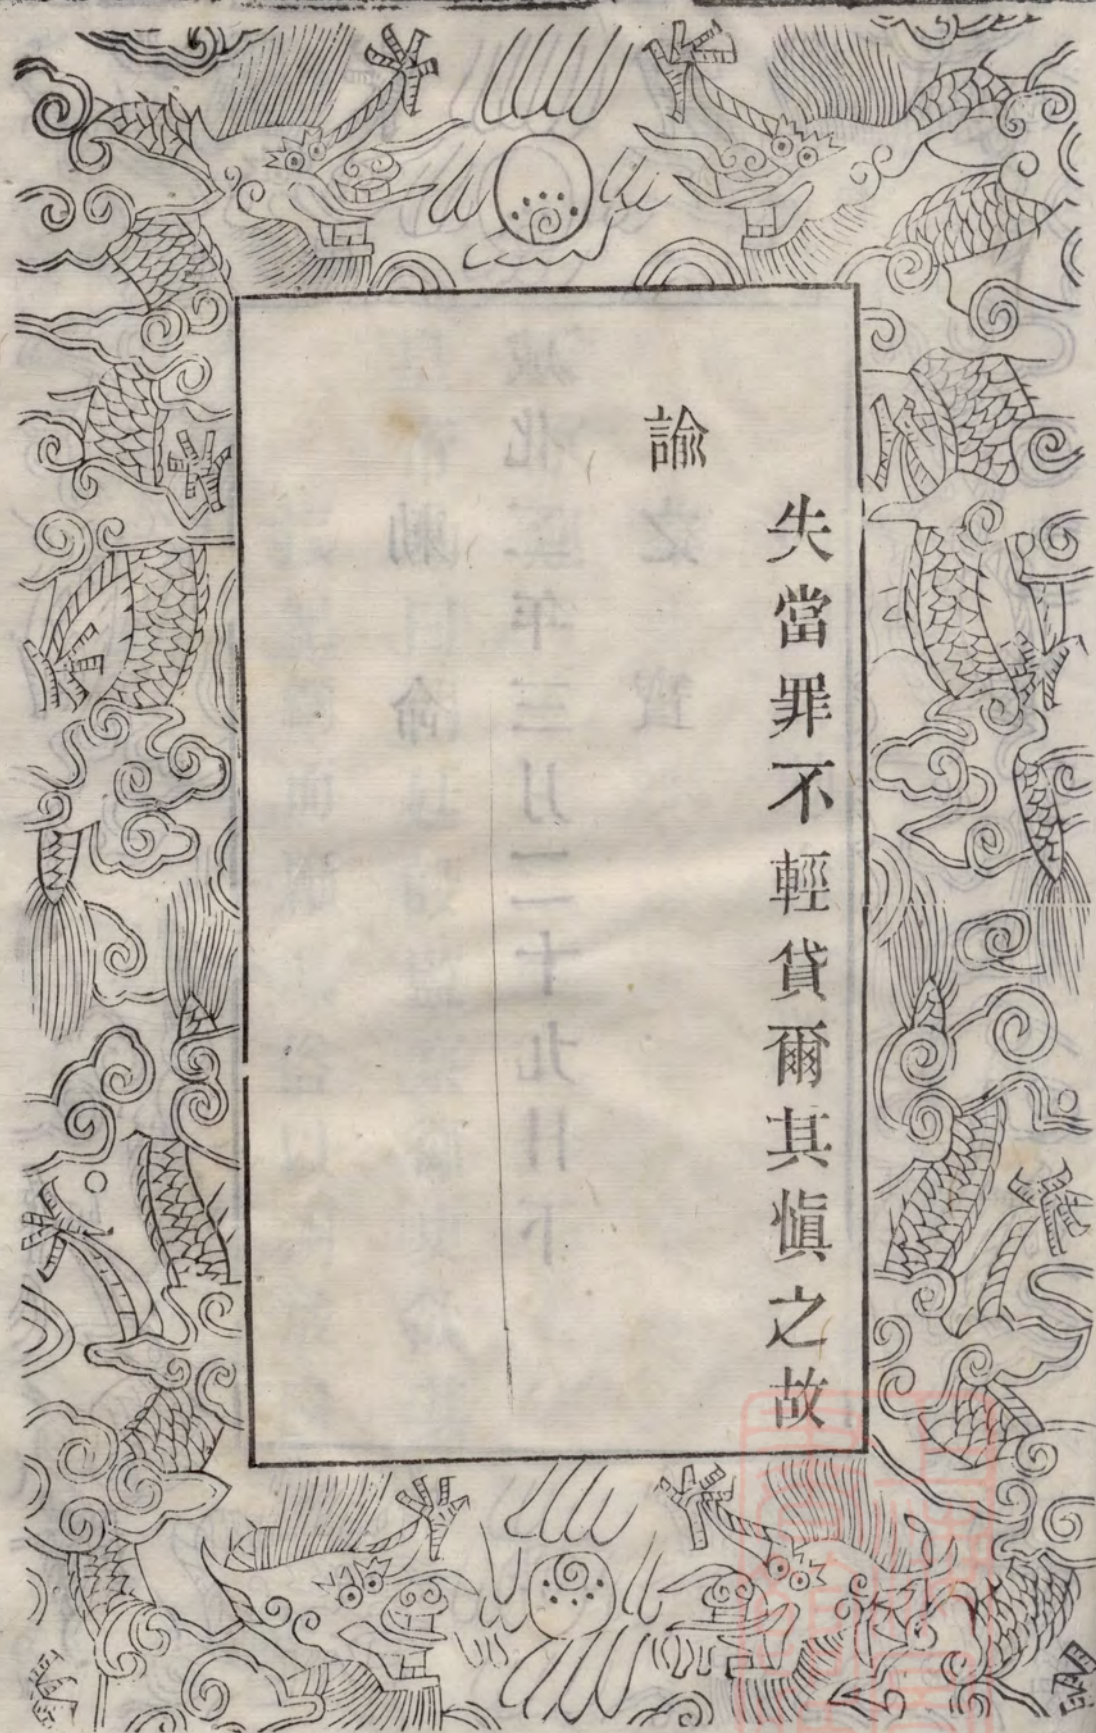 失當罪不輕貸爾其愼之故
諭